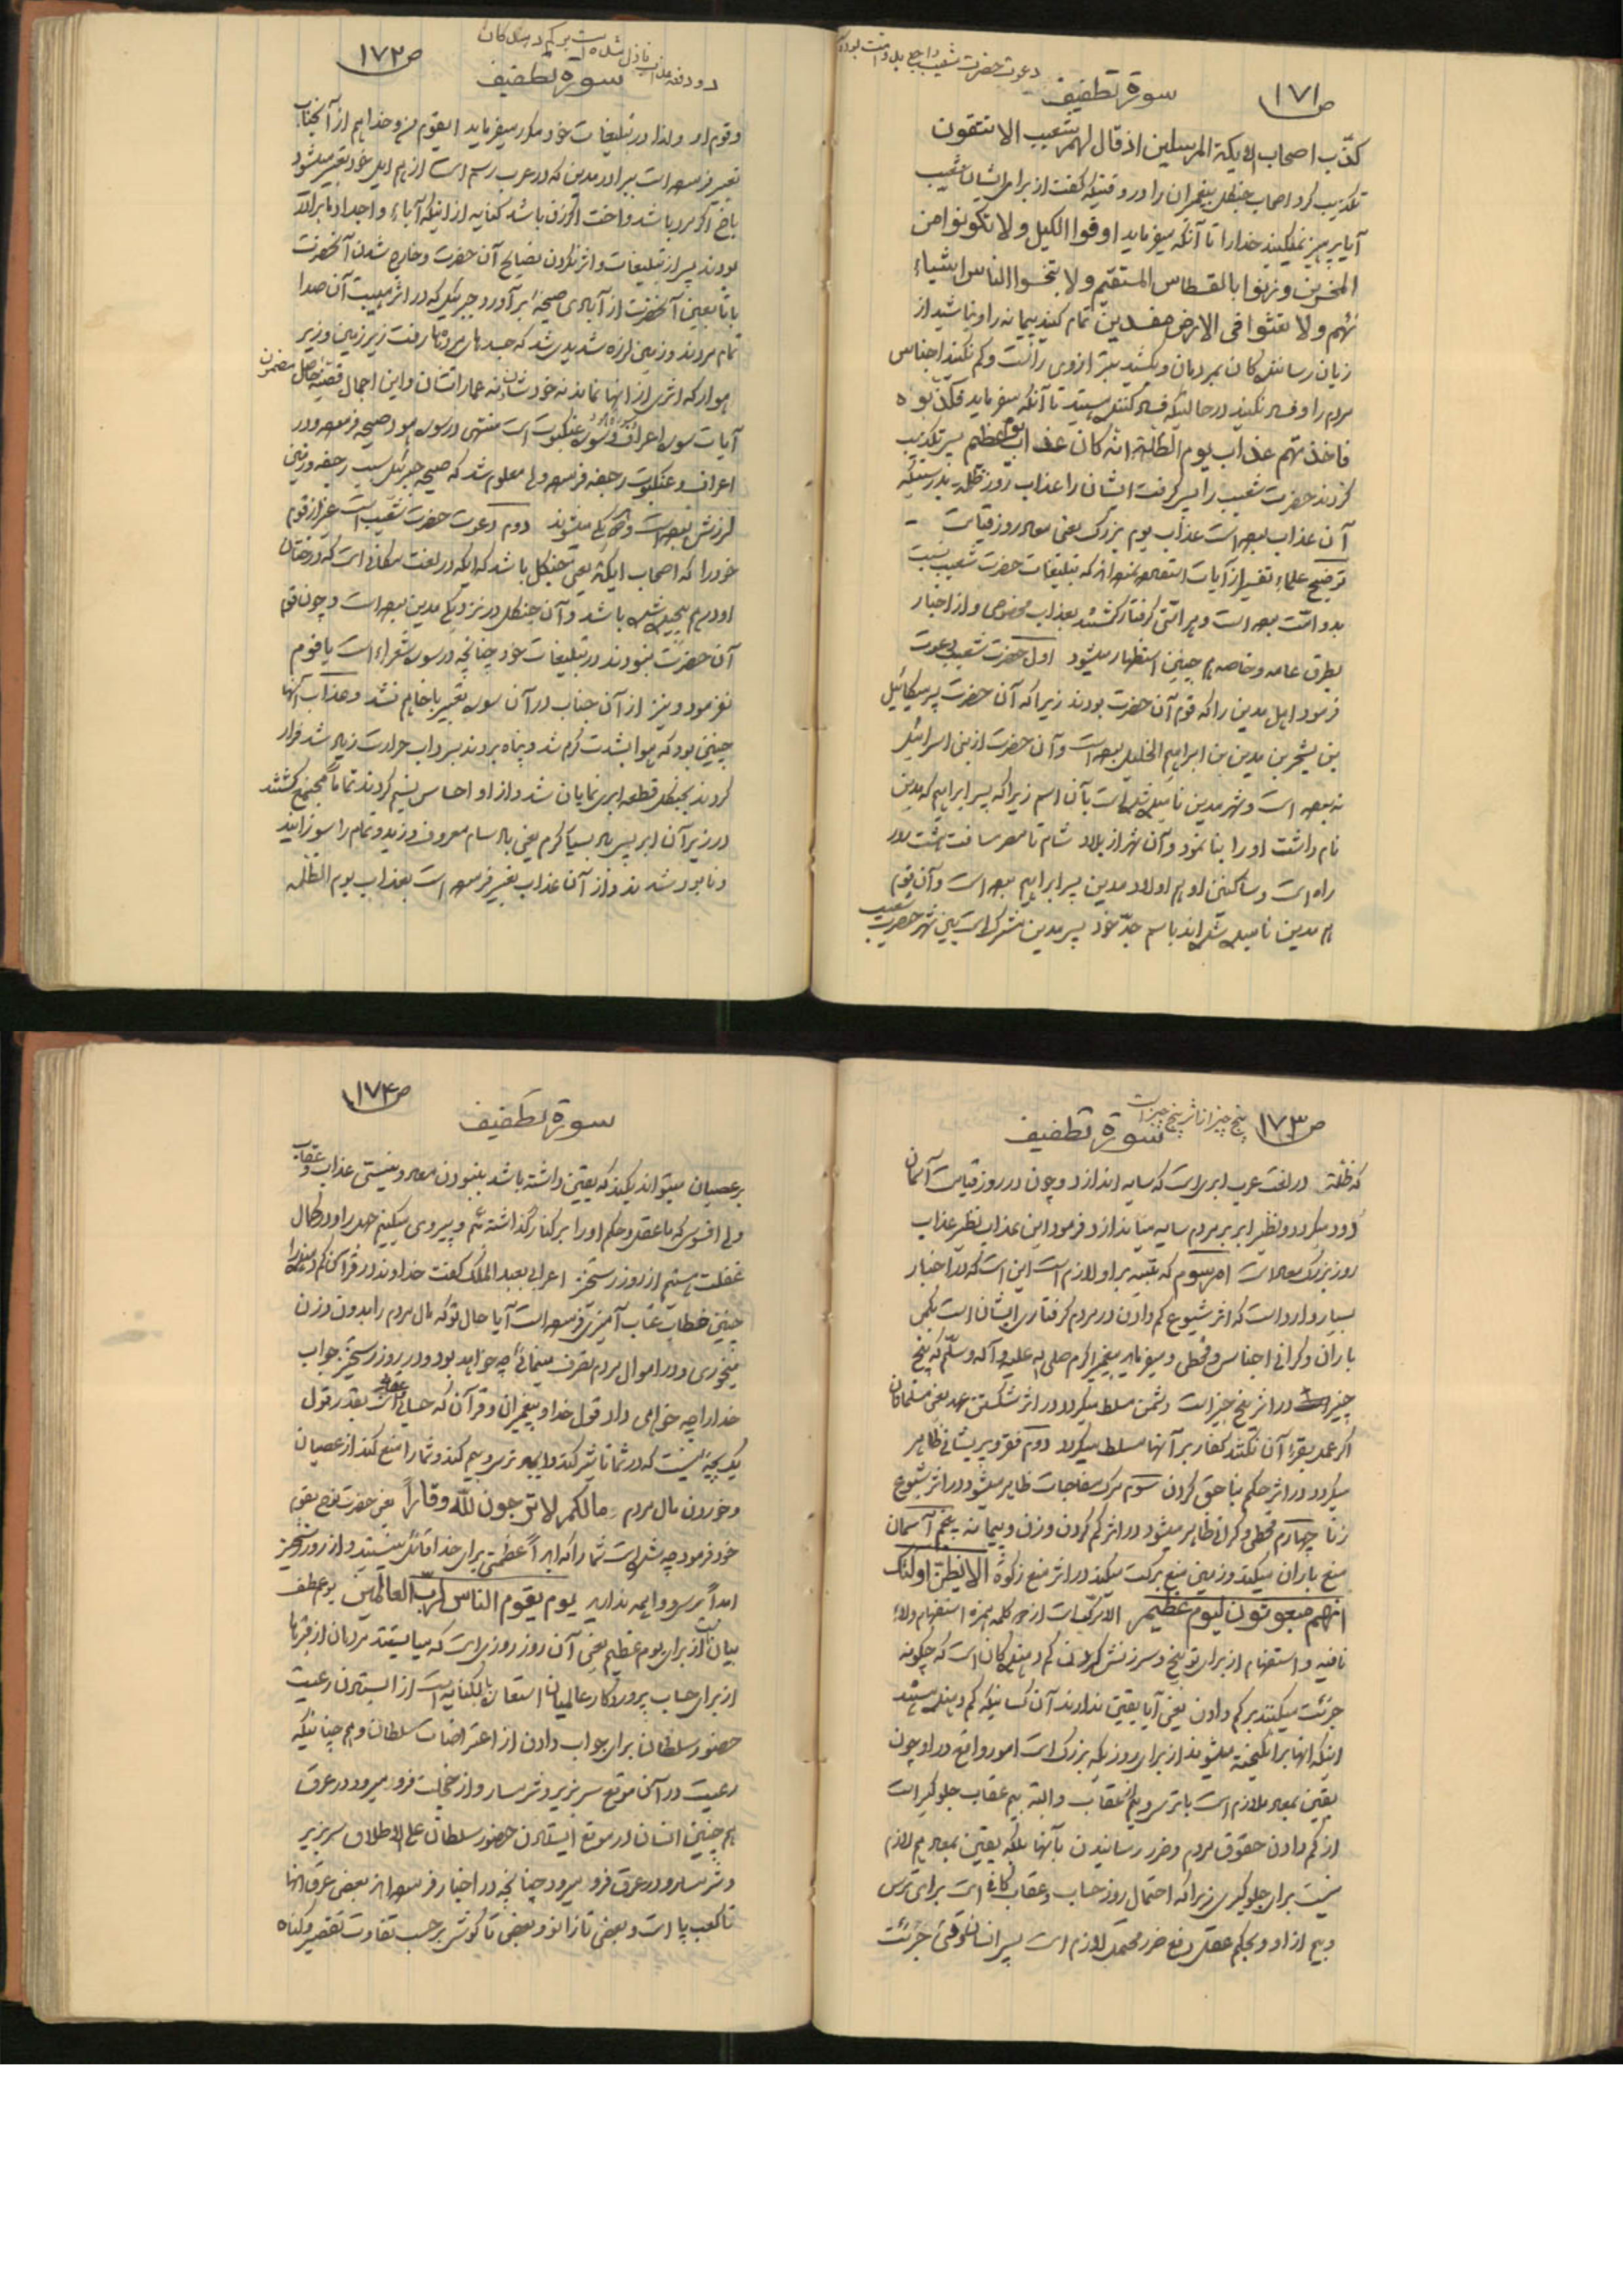 دعوت حضرت شعیب راجع بدو امت بوده
ص ۱۷۱
سورة تطفیف
کذّب اصحاب الایکة المرسلین اذ قال لهم شعیب الا تتقون
تکذیب کرد اصحاب جنگل پیغمبران را در وقتیکه گفت از برای ایشان شعیب
آیا پرهیز نمیکنید خدا را تا آنکه میفرماید اوفوا الکیل و لا تکونوا من
المخسرین و زنوا بالقسطاس المستقیم و لا تبخسوا الناس اشیاء
هم و لا تعثوا فی الارض مفسدین تمام کنید پیمانه را و نباشید از
زیان رسانندگان بمردمان و بکشید بترازوی راست و کم نکنید اجناس
مردم را و فساد نکنید در حالتیکه فساد کننده هستید تا آنکه میفرماید فکذّبوه
فاخذتهم عذاب یوم الظلة انه کان عذاب یوم عظیم پس تکذیب
کردند حضرت شعیب را پس گرفت ایشان را عذاب روز ظله بدرستیکه
آن عذاب بوده است عذاب یوم بزرگ یعنی معاد روز قیامت
توضیح علماء تفسیر از آیات استفاده نموده اند که تبلیغات حضرت شعیب نسبت
بدو امت بوده است و هر امتی گرفتار گشتند بعذاب مخصوصی و از اخبار
بطرق عامه و خاصه هم چنین استظهار میشود اول حضرت شعیب دعوت
فرمود اهل مدین را که قوم آن حضرت بودند زیرا که آن حضرت پسر میکائیل
بن یشجر بن مدین بن ابراهیم الخلیل بوده است و آن حضرت از بنی اسرائیل
نبوده است و شهر مدین نامیده شده است بآن اسم زیرا که پسر ابراهیم که مدین
نام داشت او را بنا نمود و آن شهر از بلاد شام تا مصر مسافت هشت روز
راه است و ساکنین او هم اولاد مدین پسر ابراهیم بوده است و آن قوم
هم مدین نامیده شده اند باسم جدّ خود پس مدین مشترک است بین شهر حضرت شعیب
دو دفعه عذاب نازل شده است بر کم دهندگان
ص ۱۷۲
سورة تطفیف
و قوم او و لذا در تبلیغات خود مکرر میفرماید ایقوم من و خدا هم از آنجناب
تعبیر فرموده است ببرادر مدین که در عرب رسم است از هم ایل خود تعبیر میشود
باخ اگر مرد باشد و اخت اگر زن باشد کنایه از اینکه آباء و اجداد ما برادر
بودند پس از تبلیغات و اثر نکردن نصایح آن حضرت و خارج شدن آنحضرت
با تابعین آنحضرت از آبادی صیحهٔ برآورد جبرئیل که در اثر هیبت آن صدا
تمام مردند و زمین لرزه شدیدی شد که جسدهای مرده ها رفت زیر زمین و زیر
اوار که اثری از آنها نماند نه خودشان نه عماراتشان و این اجمال قضیه حاصل مضمون
آیات سوره اعراف و سوره عنکبوت است منتهی در سوره هود صیحه فرموده و در
اعراف و عنکبوت رجفه فرموده ولی معلوم شد که صیحه جبرئیل سبب رجفه و زمین
لرزش بوده است و هر دو یکی میشوند دوم دعوت حضرت شعیب است غیر از قوم
خود را که اصحاب ایکة یعنی جنگل باشد که ایکه در لغت مکانی است که درختان
او در هم پیچیده شده باشد و آن جنگل در نزدیکی مدین بوده است و چون قوم
آن حضرت نبودند در تبلیغات خود چنانچه در سوره شعراء است یا قوم
نفرمود و نیز از آن جناب در آن سوره تعبیر باخاهم نشد و عذاب آنها
چنین بود که هوا بشدت گرم شد و پناه بردند بسرداب حرارت زیاد شد فرار
کردند بجنگل قطعه ابری نمایان شد و از او احساس نسیم کردند تماماً مجتمع گشتند
در زیر آن ابر پس باد بسیار گرم یعنی باد سام معروف وزید و تمام را سوزانید
و نابود شدند و از آن عذاب تعبیر فرموده است بعذاب یوم الظله
پنج چیز از اثر پنج چیز است
ص ۱۷۳
سورة تطفیف
که ظلّة در لغت عرب ابری است که سایه اندازد و چون در روز قیامت آسمان
دود میگردد و نظیر ابر بر مردم سایه میاندازد فرمود این عذاب نظیر عذاب
روز بزرگ معاد است امر سوم که تنبیه بر او لازم است این است که در اخبار
بسیار وارد است که اثر شیوع کم دادن در مردم گرفتاری ایشان است بکمی
باران و گرانی اجناس و قحطی و میفرماید پیغمبر اکرم صلی الله علیه و آله و سلّم که پنج
چیز در اثر پنج چیز است دشمن مسلط میگردد در اثر شکستن عهد یعنی مسلمانان
اگر عمل بقرآن نکنند کفار بر آنها مسلط میگردد دوم فقر و پریشانی ظاهر
میگردد در اثر حکم بناحق کردن سوم مرگ مفاجات ظاهر میشود در اثر شیوع
زنا چهارم قحطی و گرانی ظاهر میشود در اثر کم کردن وزن و پیمانه پنجم آسمان
منع باران میکند و زمین منع برکت میکند در اثر منع زکوة الا یظن اولئک
انهم مبعوثون لیوم عظیم الا مرکب است از دو کلمه همزه استفهام و لاء
نافیه و استفهام از برای توبیخ و سرزنش کردن کم دهندگان است که چگونه
جرئت میکنند بر کم دادن یعنی آیا یقین ندارند آن کسانیکه کم دهنده هستند
اینکه آنها برانگیخته میشوند از برای روزیکه بزرگ است امور واقع در او چون
یقین بمعاد ملازم است با ترس و بیم از عقاب و البته بیم عقاب جلوگیر است
از کم دادن حقوق مردم و ضرر رسانیدن بآنها بلکه یقین بمعاد هم لازم
نیست برای جلوگیری زیرا که احتمال روز حساب و عقاب کافی است برای ترس
و بیم از او و بحکم عقل دفع ضرر محتمل لازم است پس انسان وقتی جرئت
ص ۱۷۴
سورة تطفیف
بر عصیان میتواند بکند که یقین داشته باشد بنبودن معاد و نیستی عذاب و عقاب
ولی افسوس که ما عقل و حکم او را بر کنار گذاشته ایم و پیروی میکنیم جهل را و در کمال
غفلت هستیم از روز رستخیز اعرابی بعبد الملک گفت خداوند در قرآن کم دهنده را
چنین خطاب عتاب آمیزی فرموده است آیا حال تو که مال مردم را بدون وزن
میخوری و در اموال مردم تصرف مینمائی چه خواهد بود و در روز رستخیز جواب
خدا را چه خواهی داد قول خدا و پیغمبران و قرآن که حسابی و عقابی است بقدر قول
یک بچه نیست که در شما تاثیر کند و ایجاد ترس و بیم کند و شما را منع کند از عصیان
و خوردن مال مردم مالکم لا ترجون لله وقاراً یعنی حضرت نوح بقوم
خود فرمود چه شده است شما را که ابداً عظمتی برای خدا قائل نیستید و از روز رستخیز
ابداً ترس و واهمه ندارید یوم یقوم الناس لربّ العالمین یوم عطف
بیان است از برای یوم عظیم یعنی آن روز روزی است که میایستند مردمان از قبرها
از برای حساب پروردگار عالمیان استعاره بالکنایه است از ایستادن رعیت
حضور سلطان برای جواب دادن از اعتراضات سلطان و هم چنانکه
رعیت در آن موقع سر بزیر و شرمسار و از خجلت فرو میرود در عرق
هم چنین انسان در موقع ایستادن حضور سلطان علی الاطلاق سر بزیر
و شرمسار و در عرق فرو میرود چنانچه در اخبار فرموده اند بعضی عرق آنها
تا کعب پا است و بعضی تا زانو و بعضی تا گوش بر حسب تفاوت تقصیر و گناه